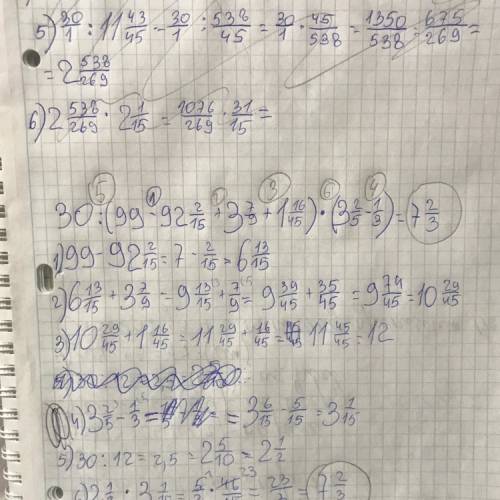 5) 30/1 : 11 43/45 = 30/1 : 538/45 = 30/1 · 45/538 = 1350/538 = 675/269 =
= 2 538/269
6) 2 538/269 · 2 1/15 = 1076/269 · 31/15 =
5 1 1 3 6 4
30 : (99 - 92 2/15 + 3 7/9 + 1 16/45) · (3 2/5 - 1/3) = 7 2/3
1) 99 - 92 2/15 = 7 - 2/15 = 6 13/15
2) 6 13/15 + 3 7/9 = 9 13/15 + 7/9 = 9 39/45 + 35/45 = 9 74/45 = 10 29/45
3) 10 29/45 + 1 16/45 = 11 29/45 + 16/45 = 11 45/45 = 12
4) 3 2/5 - 1/3 = = 3 6/15 - 5/15 = 3 1/15
5) 30 : 12 = 2,5 = 2 5/10 = 2 1/2
6) 2 1/2 · 3 1/15 = 5/2 · 46/15 = 23/3 = 7 2/3